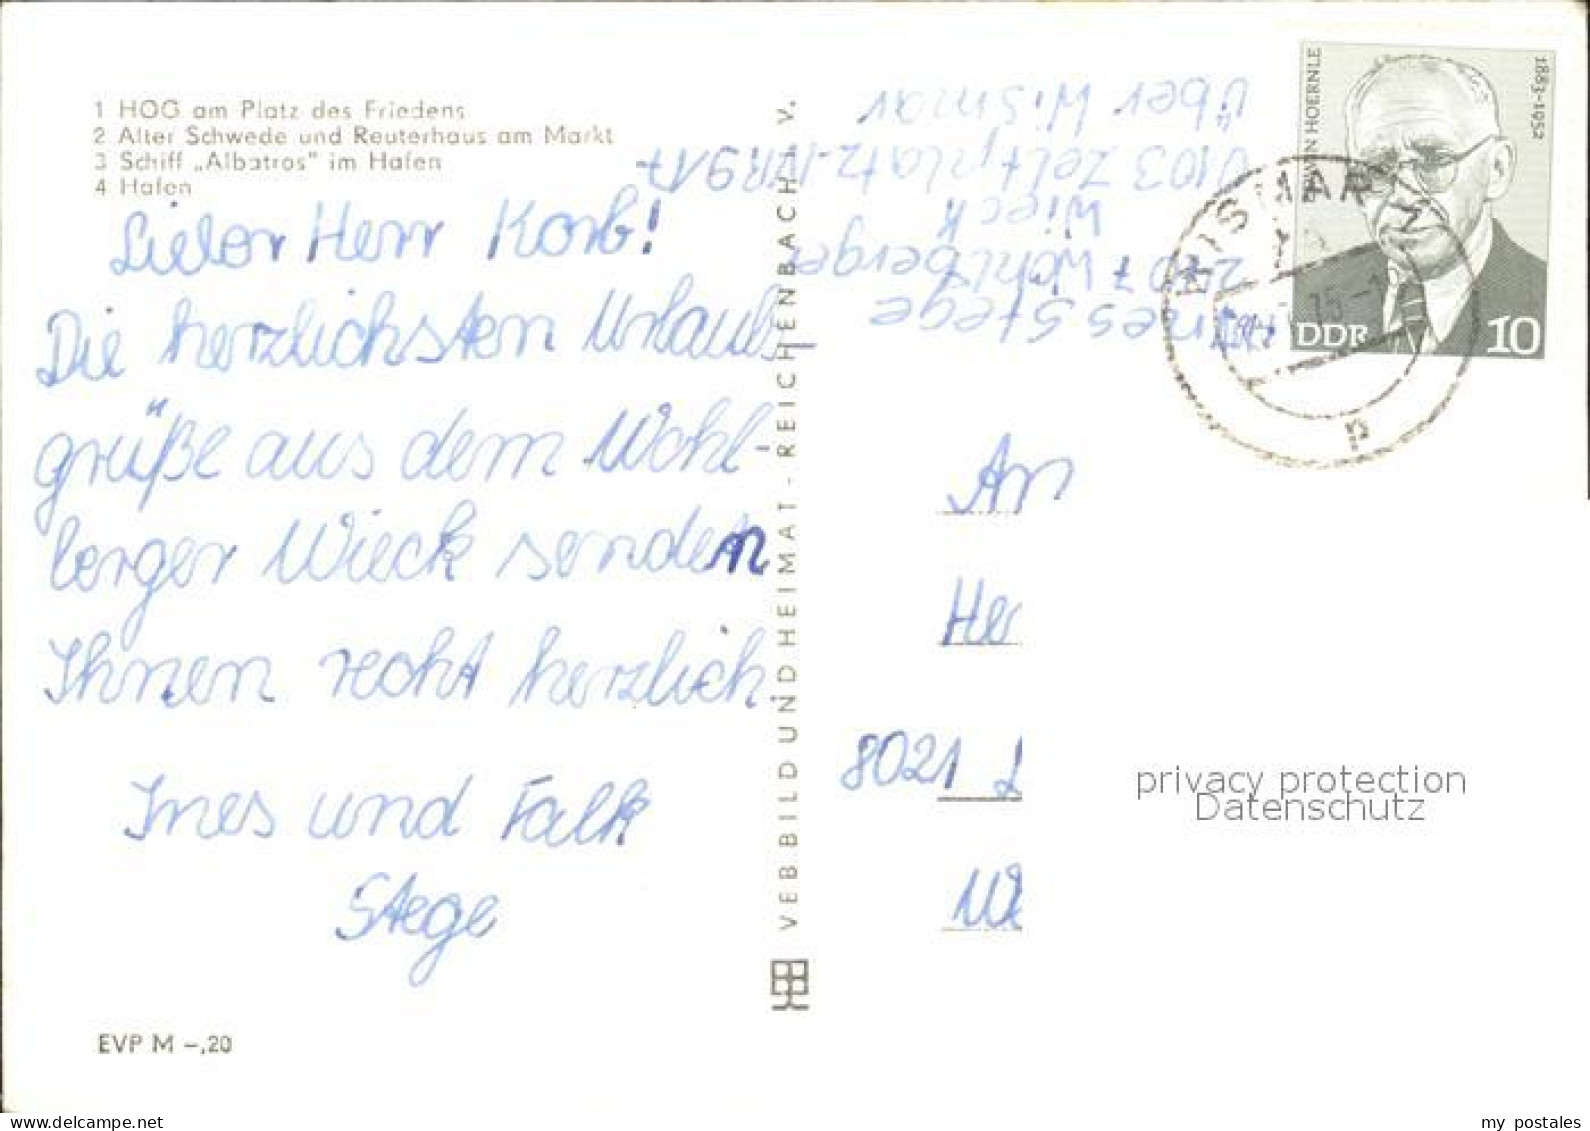 1 HOG am Platz des Friedens
2 Alter Schwede und Reuterhaus am Markt
3 Schiff „Albatros" im Hafen
4 Hafen
Lieber Herr Korb!
Die herzlichsten Urlaubs-
grüße aus dem Wohl-
lerger Wieck senden
Ihnen recht herzlich
Ines und Falk
Stege
EVP M –,20
VEB BILD UND HEIMAT · REICHENBACH I. V.
Ines Stege
2407 Wohlsberger
Wieck
V103 Zeltplatz-NR 917
über Wismar
ERWIN HOERNLE
1883-1952
DDR 10
WISMAR
An
Her
8021
privacy protection
Datenschutz
my postales